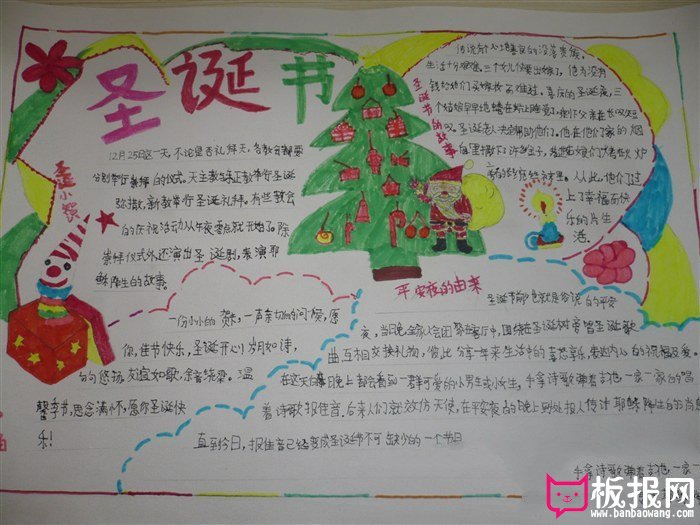 圣诞节
12月25日这一天,不论是否礼拜天,各教会都要
分别举行崇拜的仪式。天主教与东正教举行圣诞
弥撒,新教举行圣诞礼拜。有些教会
的庆祝活动从午夜零点就开始了。除
崇拜仪式外,还演出圣诞剧,表演耶
稣降生的故事。
圣诞节的故事
传说有个土地善良的没落贵族。
生活十分艰难。三个女儿快要出嫁了,他为没有
圣诞老人决定帮助他们。他在他们家的烟
了幸福而快
乐的生
活。
圣诞小贺
一份小小的贺卡,一声亲切的问候,愿
你,佳节快乐,圣诞开心!岁月如诗,
句句悠扬,友谊如歌,余音绕梁。温
馨季节,思念满怀,愿你圣诞快
乐!
平安夜的由来
圣诞节前夜也就是俗说的平安
夜,当日晚,全家人会团聚在客厅中,围绕在圣诞树旁唱圣诞歌
曲,互相交换礼物,彼此分享一年来生活中的喜怒哀乐,表达内心的祝福及爱。
在这天晚上都会看到一群可爱的小男生或小女生,手拿诗歌弹着吉他,一家一家的唱
着诗歌报佳音。后来人们就效仿天使,在平安夜的晚上到处报人传讲耶稣降生的消息
直至今日,报佳音已经变成圣诞节不可缺少的一个节目
手拿诗歌弹着吉他,一家一
板报网
www.banbaowang.com